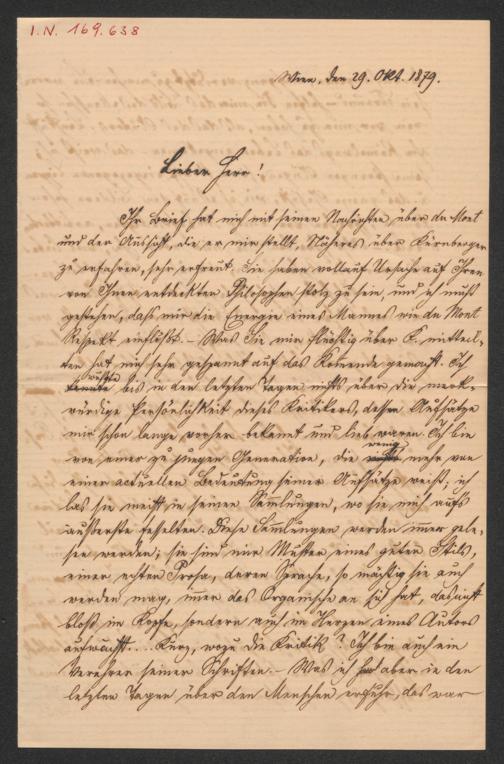 I.N. 169.638
Wien, den 29. Okt. 1879.
Lieber Herr!
Ihr Brief hat mich mit seinen Nachrichten über du Mont
und der Aussicht, die er mir stellt, Näheres über Kürnberger
zu erfahren, sehr erfreut. Sie haben vollauf Ursache auf Ihren
von Ihnen entdeckten Philosophen stolz zu sein, und ich muß
gestehen, daß mir die Energie eines Mannes wie du Mont
Respekt einflößt. – Was Sie mir flüchtig über K. mitteil-
ten hat mich sehr gespannt auf das Kommende gemacht. Ich
wußte
kannte bis in den letzten Tagen nichts über die merk-
würdige Persönlichkeit dieses Kritikers, dessen Aufsätze
mir schon lange vorher bekannt und lieb waren. Ich bin
von einer zu jungen Generation, die mehr von
wenig
einer actuellen Bedeutung seiner Aufsätze weiß, ich
las sie meist in seinen Sammlungen, wo sie mich aufs
äußerste fesselten. Diese Sammlungen werden immer gele-
sen werden; sie sind mir Muster eines guten Stils,
einer echten Prosa, deren Sprache, so mächtig sie auch
werden mag, immer das Organische an sich hat, daß nicht
bloß im Kopfe, sondern auch im Herzen eines Autors
aufwächst.... Kurz, wozu die Kritik? Ich bin auch ein
Verehrer seiner Schriften. – Was ich aber in den
letzten Tagen über den Menschen erfuhr, das war